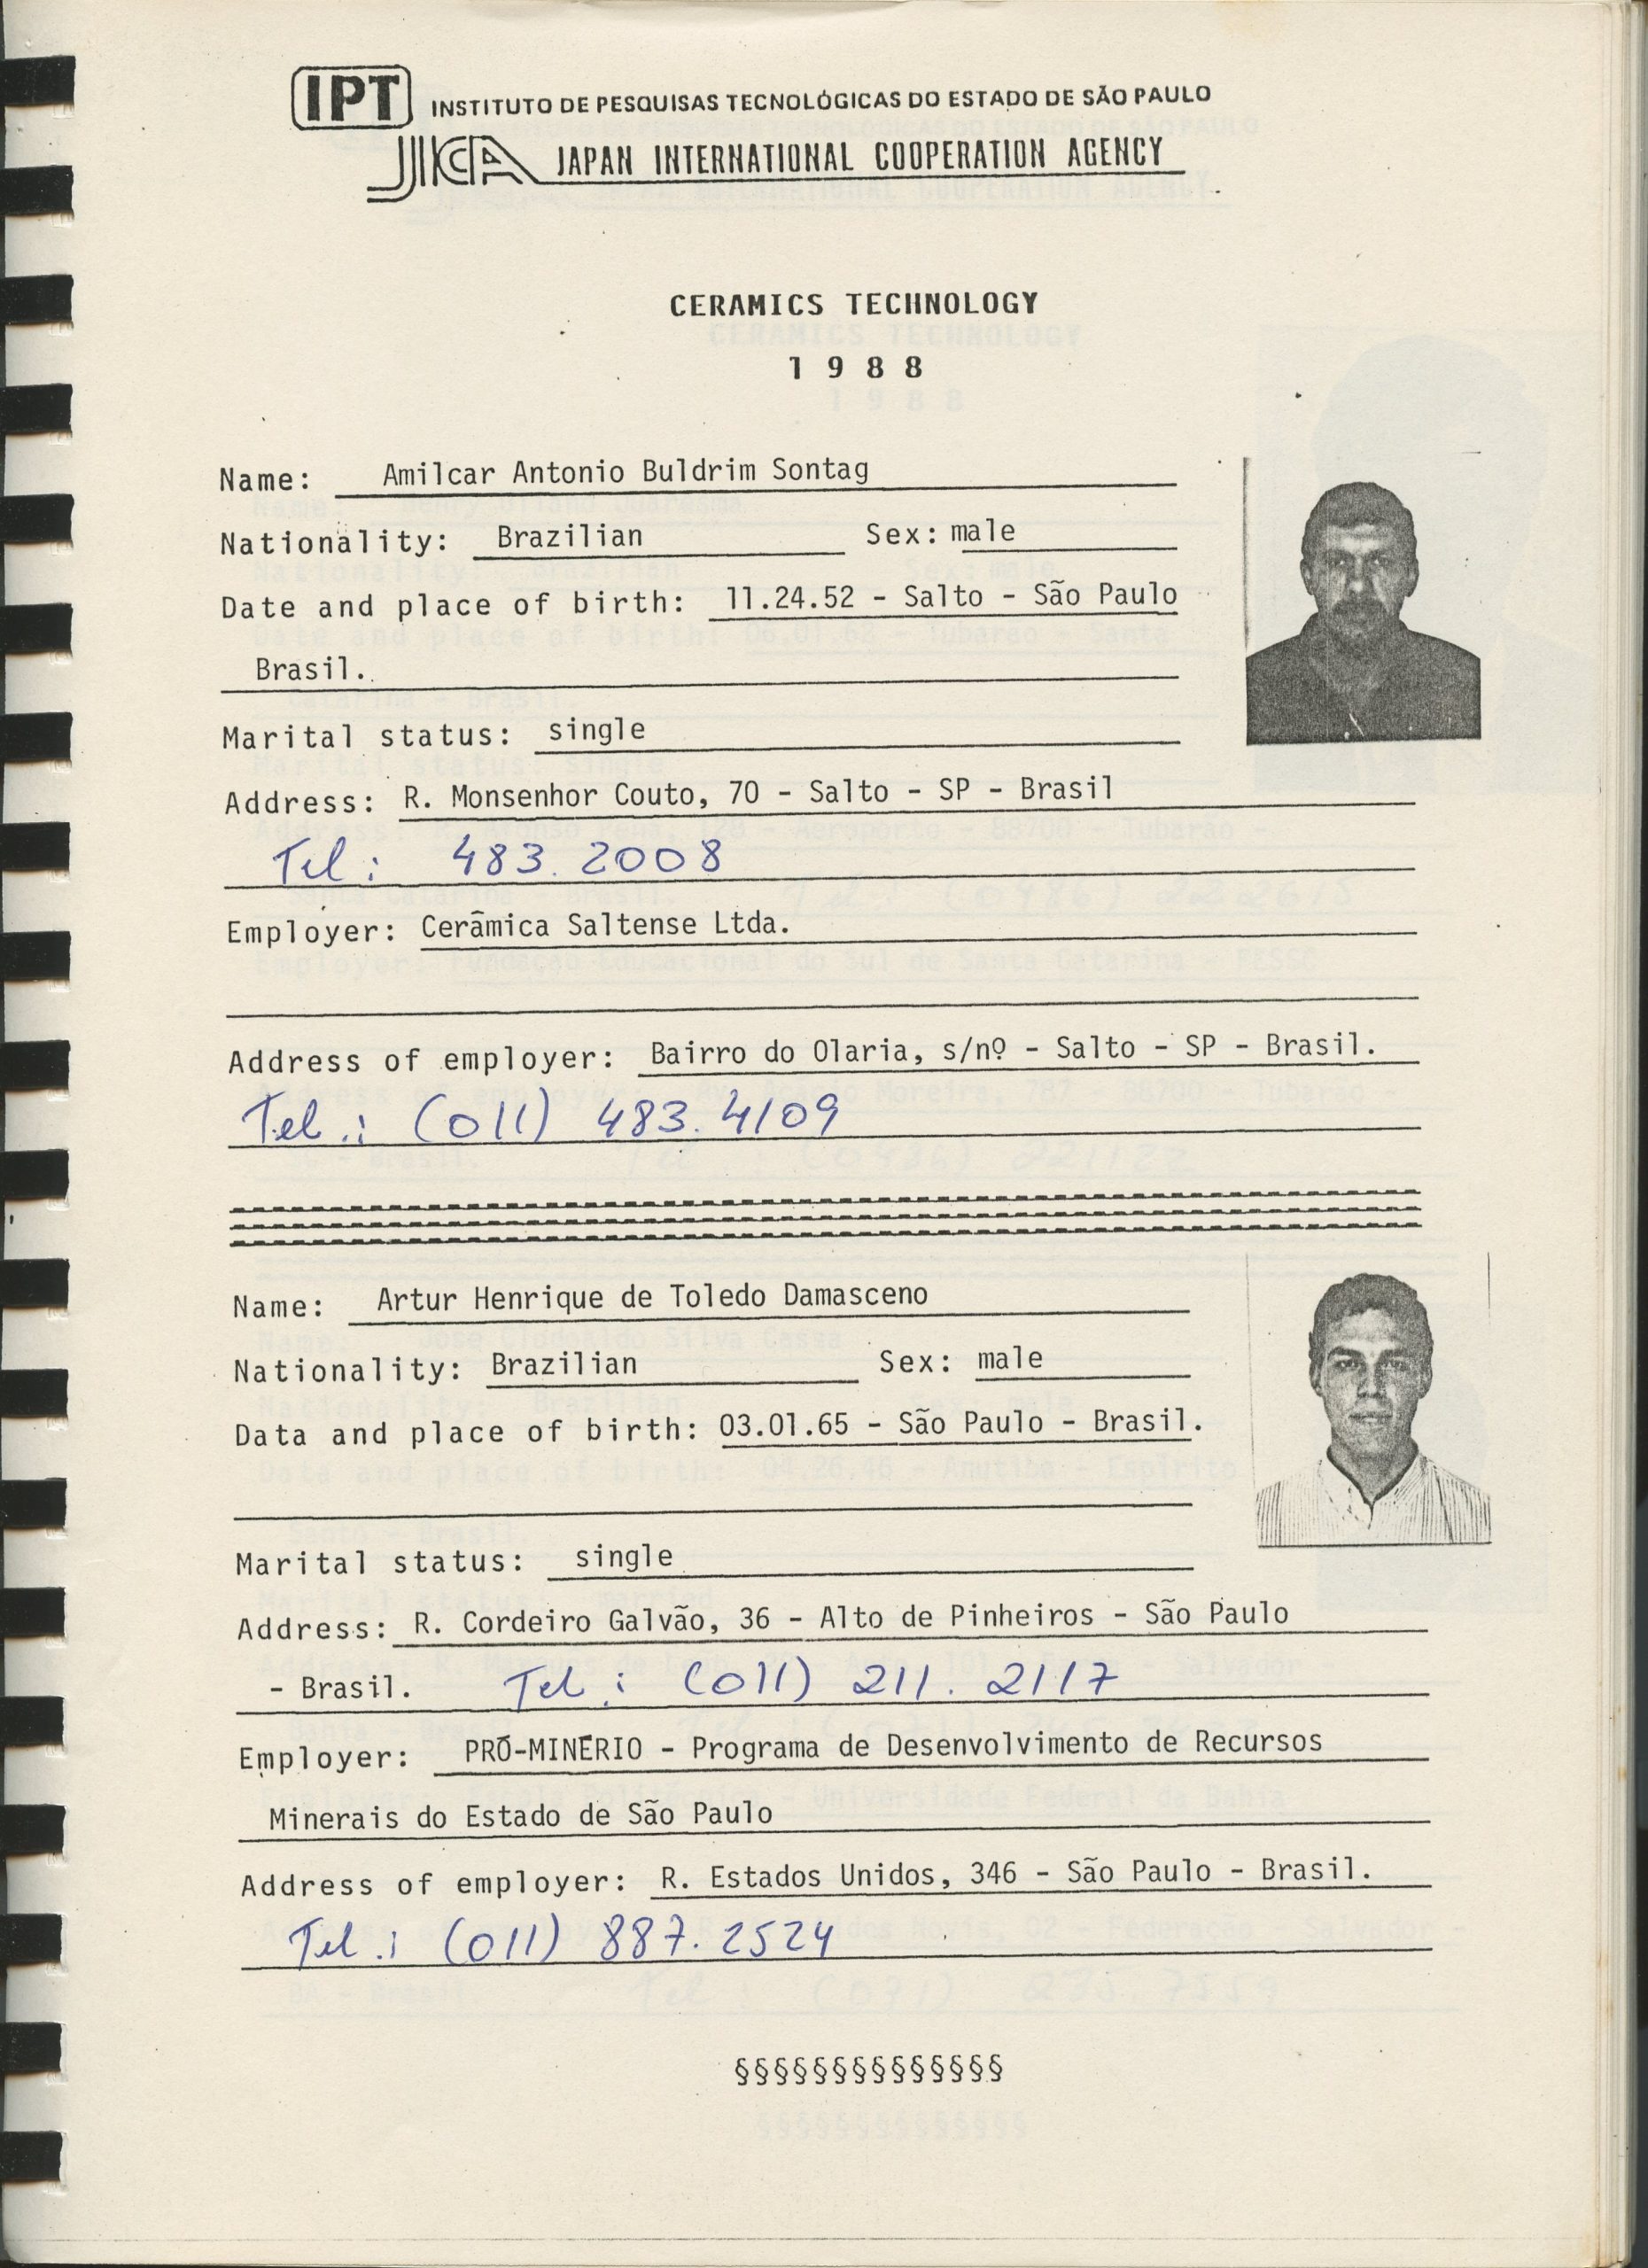 IPT INSTITUTO DE PESQUISAS TECNOLÓGICAS DO ESTADO DE SÃO PAULO
JICA JAPAN INTERNATIONAL COOPERATION AGENCY
CERAMICS TECHNOLOGY
1 9 8 8
Name: Amilcar Antonio Buldrim Sontag
Nationality: Brazilian Sex: male
Date and place of birth: 11.24.52 - Salto - São Paulo
Brasil.
Marital status: single
Address: R. Monsenhor Couto, 70 - Salto - SP - Brasil
Tel: 483.2008
Employer: Cerâmica Saltense Ltda.
Address of employer: Bairro do Olaria, s/nº - Salto - SP - Brasil.
Tel.: (011) 483.4109
Name: Artur Henrique de Toledo Damasceno
Nationality: Brazilian Sex: male
Data and place of birth: 03.01.65 - São Paulo - Brasil.
Marital status: single
Address: R. Cordeiro Galvão, 36 - Alto de Pinheiros - São Paulo
- Brasil. Tel.: (011) 211.2117
Employer: PRÓ-MINÉRIO - Programa de Desenvolvimento de Recursos
Minerais do Estado de São Paulo
Address of employer: R. Estados Unidos, 346 - São Paulo - Brasil.
Tel.: (011) 887.2524
§§§§§§§§§§§§§§